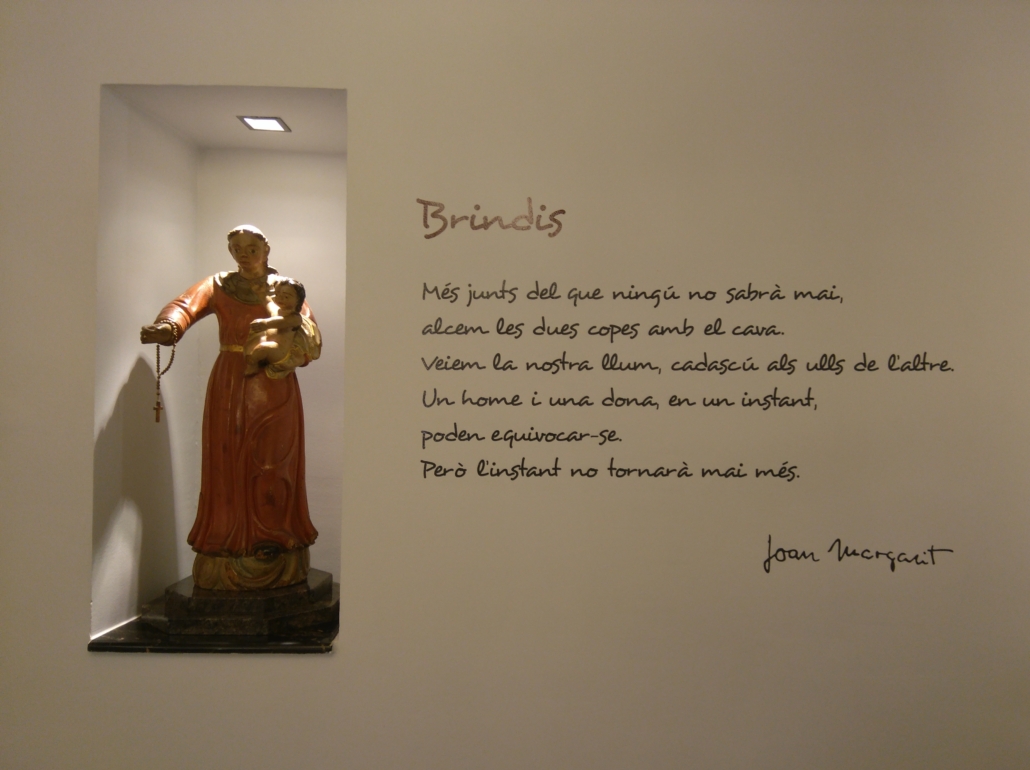 Brindis
Més junts del que ningú no sabrà mai,
alcem les dues copes amb el cava.
Veiem la nostra llum, cadascú als ulls de l'altre.
Un home i una dona, en un instant,
poden equivocar-se.
Però l'instant no tornarà mai més.
Joan Margarit